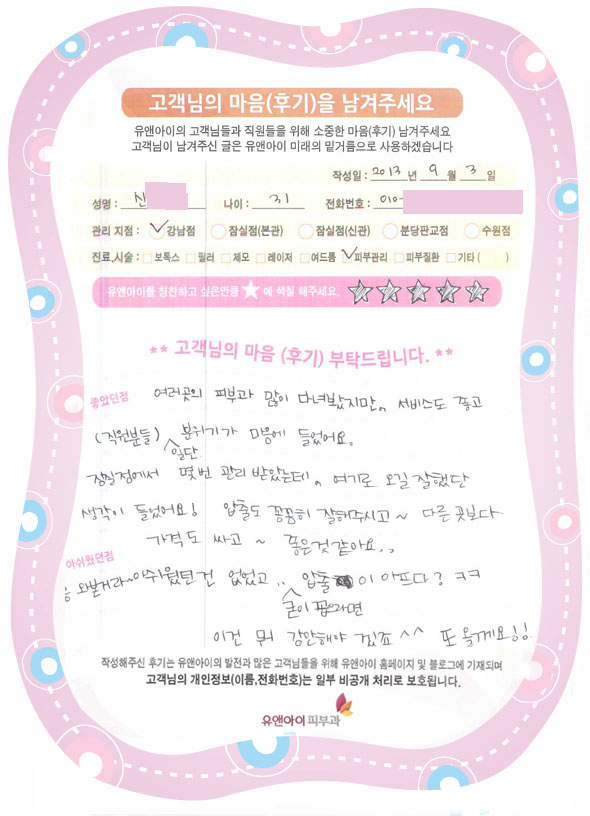 고객님의 마음(후기)을 남겨주세요
유앤아이의 고객님들과 직원들을 위해 소중한 마음(후기) 남겨주세요
고객님이 남겨주신 글은 유앤아이 미래의 밑거름으로 사용하겠습니다
작성일 : 2013 년 9 월 3 일
성명 : 신 나이 : 31 전화번호 : 010-
관리 지점 : 강남점 잠실점(본관) 잠실점(신관) 분당판교점 수원점
진료,시술 : 보톡스 필러 제모 레이저 여드름 피부관리 피부질환 기타 ( )
유앤아이를 칭찬하고 싶은만큼 ★ 에 색칠 해주세요.
** 고객님의 마음 (후기) 부탁드립니다. **
좋았던점 여러곳의 피부과 많이 다녀봤지만, 서비스도 좋고
(직원분들) 일단 분위기가 마음에 들었어요.
잠실점에서 몇번 관리 받았는데, 여기로 오길 잘했단
생각이 들었어요! 압출도 꼼꼼히 잘해주시고~ 다른곳보다
가격도 싸고 ~ 좋은것같아요..
아쉬웠던점
아쉬웠던건 없었고.. 굳이 뽑으라면 압출이 아프다? ㅋㅋ
이건 뭐 감안해야 겠죠^^ 또 올께요!!
작성해주신 후기는 유앤아이의 발전과 많은 고객님들을 위해 유앤아이 홈페이지 및 블로그에 기재되며
고객님의 개인정보(이름,전화번호)는 일부 비공개 처리로 보호됩니다.
유앤아이피부과